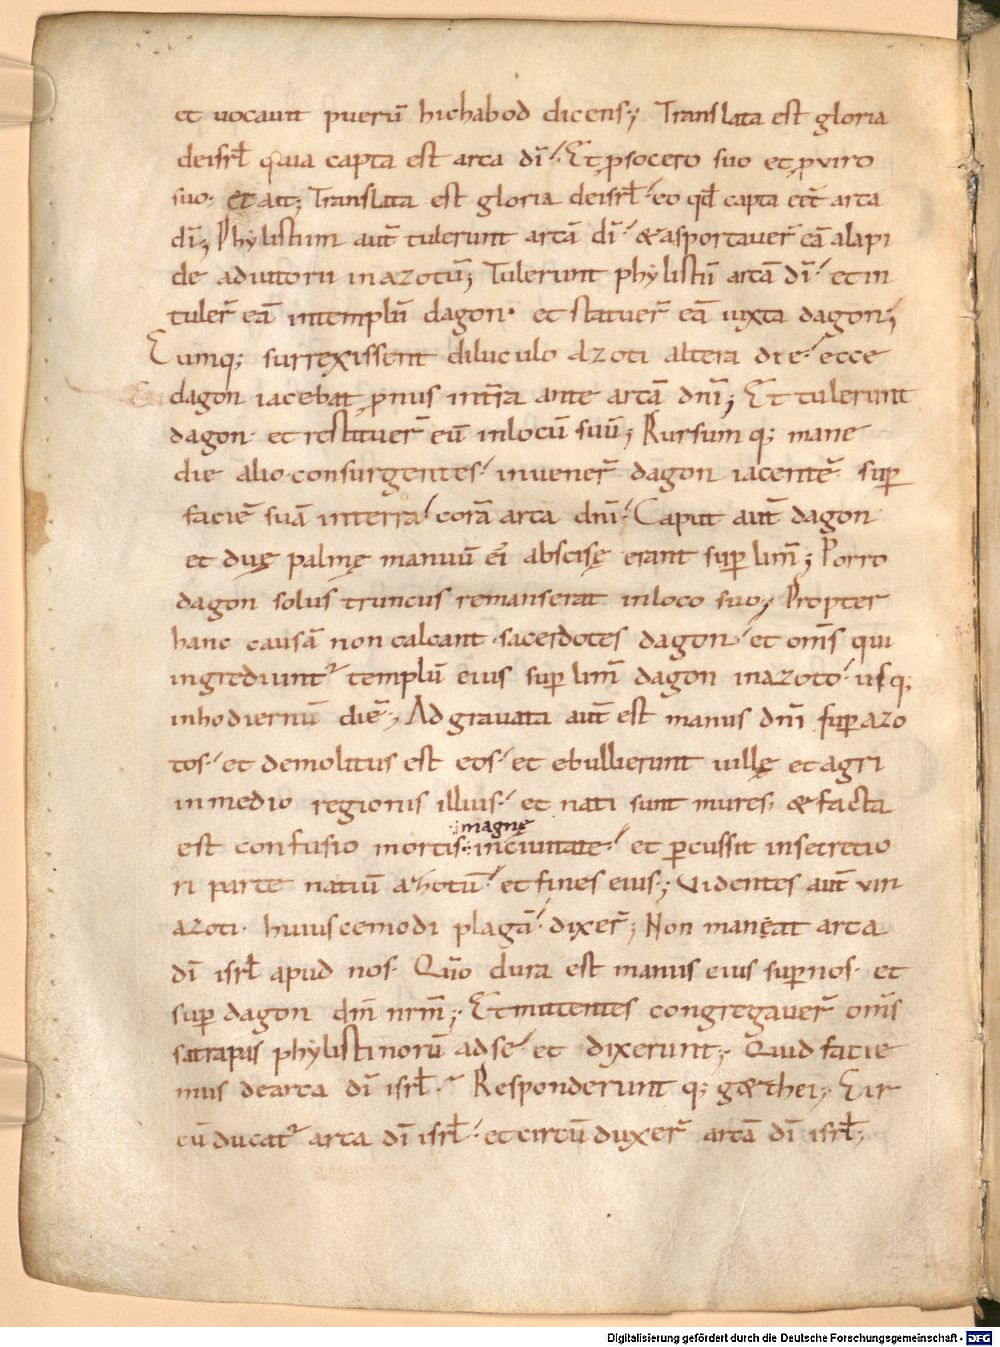 et uocauit puerū hichabod dicens; Translata est gloria
deisrł quia capta est arca dī; Et ꝓsocero suo et ꝓuiro
suo; et ait; Translata est gloria deisrł eo qđ capta eēt arca
dī; Phylistiim aut̄ tulerunt arcā dī &asportauer̄ eā alapi
de adiutorii inazotū; Tulerunt phylistii arcā dī et in
tuler̄ eā intemplū dagon. et statuer̄ eā iuxta dagon;
Cumq; surrexissent diluculo azoti altera die ecce
dagon iacebat ꝓnus interra ante arcā dnī; Et tulerunt
dagon et restituer̄ eū inlocū suū; Rursumq; mane
die alio consurgentes inuener̄ dagon iacentē sup
faciē suā interra corā arca dnī; Caput aut̄ dagon
et duę palmę manuū ei abscisę erant sup lim̄; Porro
dagon solus truncus remanserat inloco suo; Propter
hanc causā non calcant sacerdotes dagon et om̄s qui
ingrediunt templū eius sup lim̄ dagon inazoto usq;
inhodiernū diē; Adgrauata aut̄ est manus dnī sup azo
tos et demolitus est eos et ebullierunt uillę et agri
inmedio regionis illius et nati sunt mures; & facta
est confusio mortis magnę inciuitate et ꝑcussit insecretio
ri parte natiū azotū et fines eius; Videntes aut̄ uiri
azoti huiuscemodi plagā dixer̄; Non maneat arca
dī isrł apud nos. Qūo dura est manus eius supnos. et
sup dagon dm̄ nrm̄; Et mittentes congregauer̄ om̄s
satrapas phylistinorū adse et dixerunt; Quid facie
mus dearca dī isrł. Responderuntq; gethei; Cir
cū ducat arca dī isrł et circū duxer̄ arcā dī isrł;
Digitalisierung gefördert durch die Deutsche Forschungsgemeinschaft - DFG